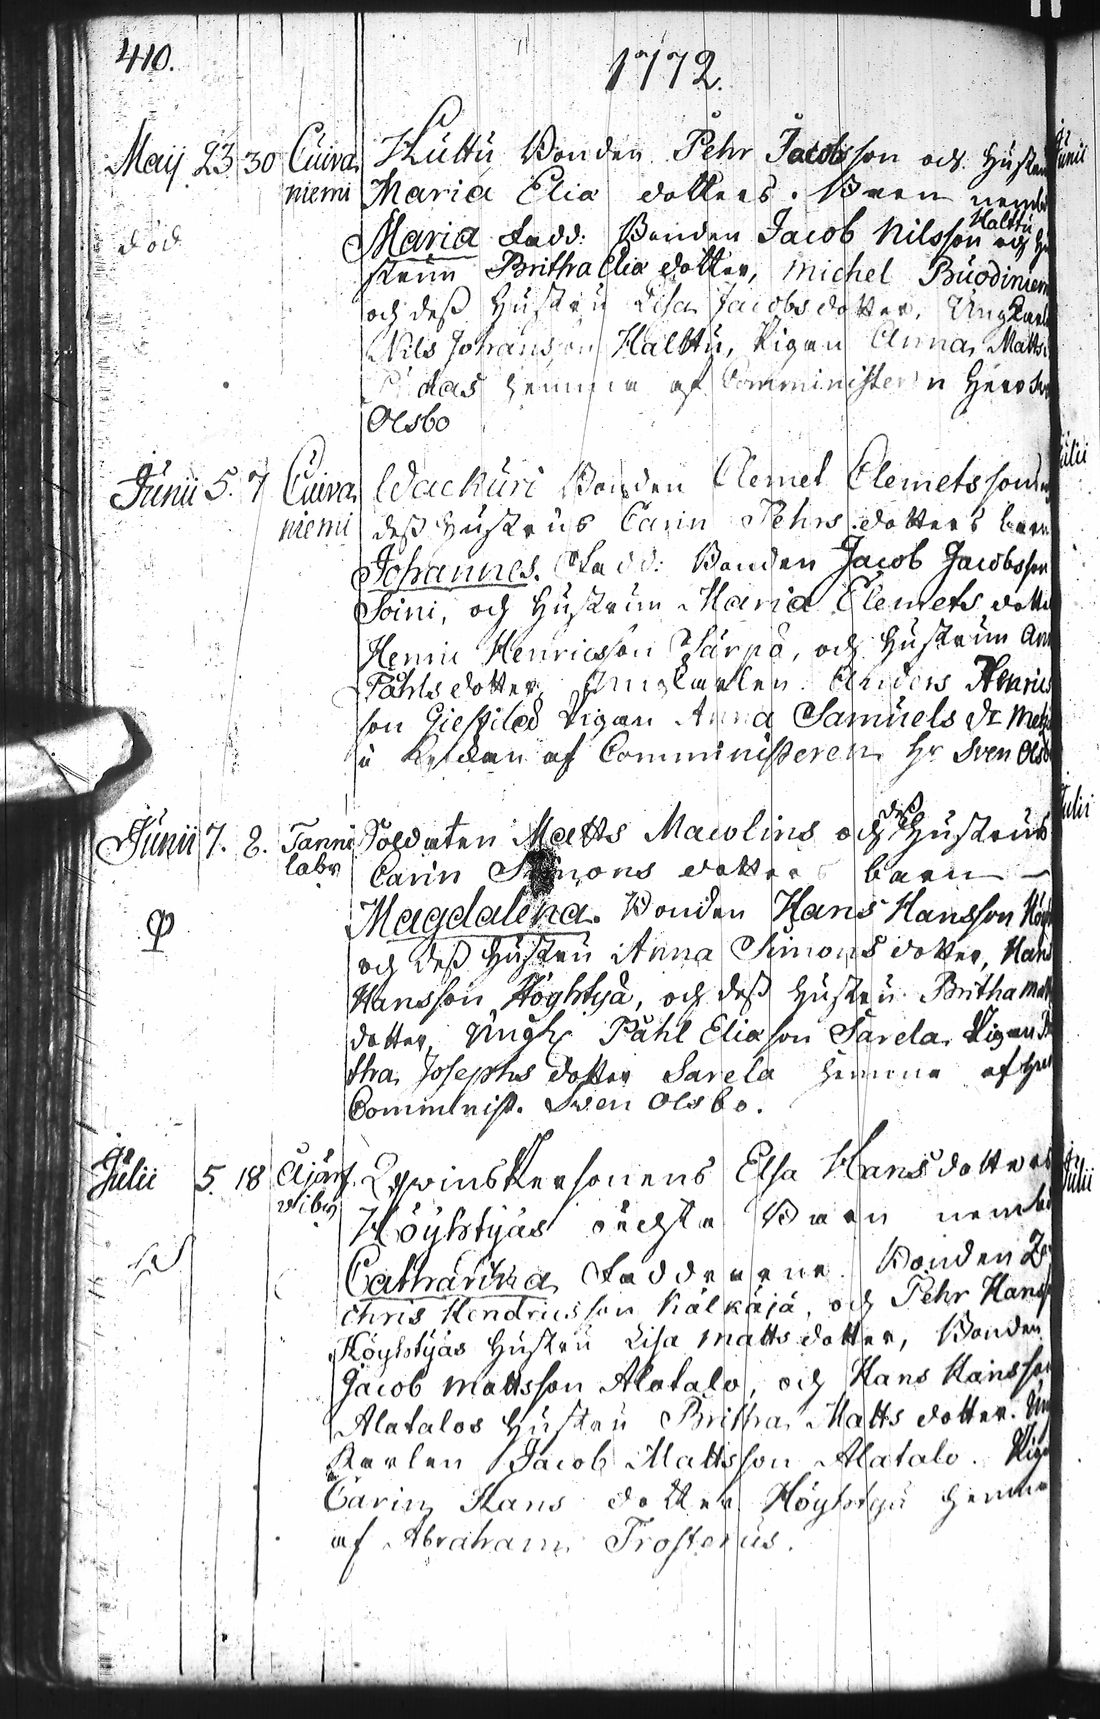 410.
1772.
Maij 23 30 Cuiva Kuttu Bonden Pehr Jacobsson och Hustru
niemi Maria Elia dotters. Barn nembl
död Maria Fadd: Bonden Jacob Nilsson Halttu och Hu
strun Britha Elia dotter, Michel Buodiniem
och dess Hustru Lisa Jacobsdotter, Ungkarl
Nils Johansson Halttu, Pigan Anna Matts
das hemma af Comministern Herr Sv
Olsbo
Junii 5. 7 Cuiva Wackuri Bonden Clemet Clemetsson
niemi dess Hustrus Carin Pehrs dotters barn
Johannes. Fadd: Bonden Jacob Jacobsson
Soini, och Hustrun Maria Clemets dotte
Henric Henricsson Särpä, och Hustrun An
Påhls dotter, Ungkarlen Anders Henrics
son Pigan Anna Samuels dr
u kyrckan af Comministeren Hr Sven Olsb
Junii 7. 8. Tanni Soldaten Matts Mawlins och dess Hustrus
laby Carin Simons dotters barn
Magdalena. Bonden Hans Hansson Höy
och dess Hustru Anna Simons dotter, Hans
Hansson Höyhtyä, och dess Hustru Britha Matt
dotter, Ungk. Påhl Eliasson Sarela, Pigan Bri
tha Josephs dotter Sarela hemma af Her
Comminist. Sven Olsbo.
Julii 5. 18 Aijärf Qwins Personens Elsa Hans dotters
viby Höyhtyäs oächta Barn nembl
Catharina Faddrarne Bonden Za
chris Hendricsson Kälkäjä, och Pehr Hans
Höyhtyäs Hustru Lisa Matts dotter, Bonden
Jacob Mattsson Alatalo, och Hans Hansson
Alatalos Hustru Britha Matts dotter. Un
karlen Jacob Mattsson Alatalo. Piga
Carin Hans dotter Höyhtyä hemma
af Abraham Frosterus.
Junii
Julii
Julii
Julii